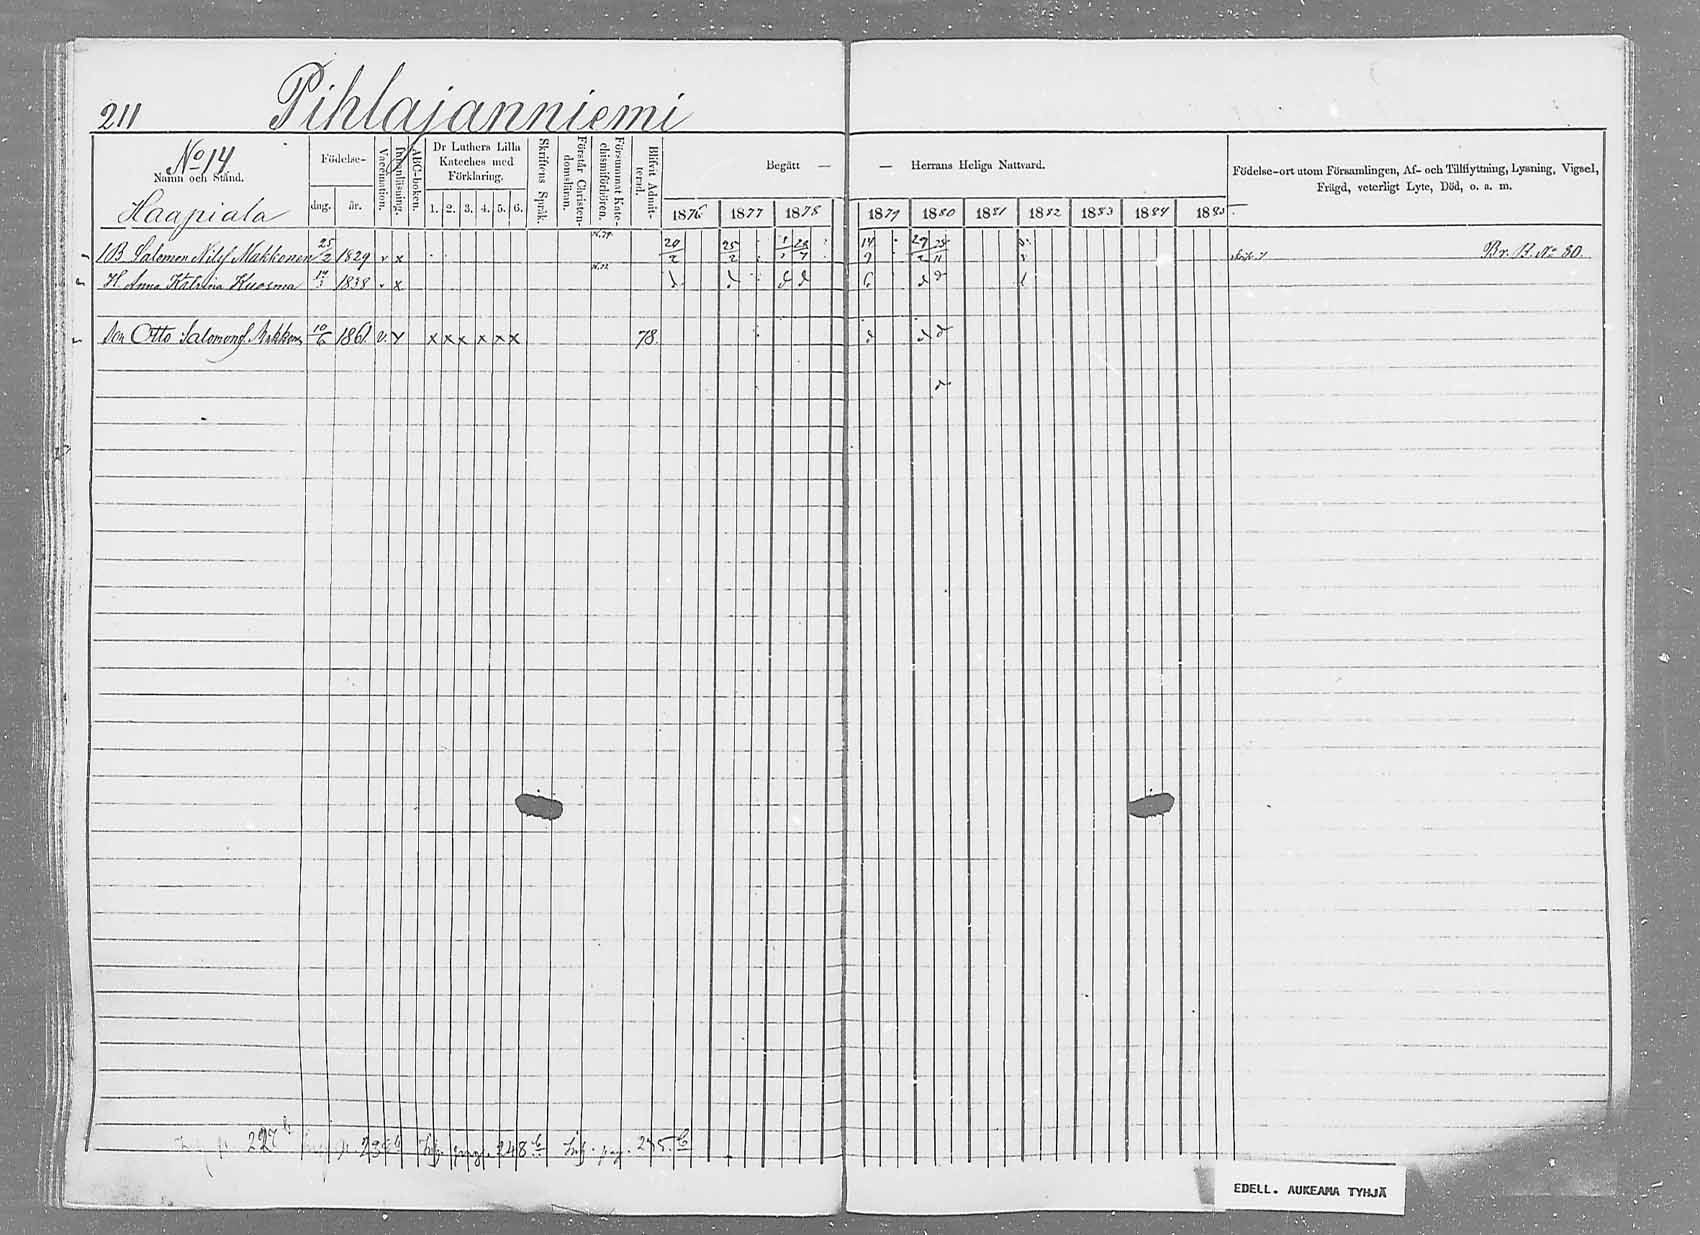 211 Pihlajanniemi
No 14
Namn och Stånd.
Haapiala
Födelse-
dag. år.
Vaccination.
Innanläsning.
ABC-boken.
Dr Luthers Lilla Kateches med Förklaring.
1. 2. 3. 4. 5. 6.
Skriftens Språk.
Förstår Christendomsläran.
Försummat Katechismiförhören.
Blifvit Admitterad.
Begått — — Herrans Heliga Nattvard.
1876 1877 1878 1879 1880 1881 1882 1883 1884 1885
Födelse-ort utom Församlingen, Af- och Tillflyttning, Lysning, Vigsel,
Frägd, veterligt Lyte, Död, o. a. m.
B Salomon Nilsf Makkonen 25/2 1829 v x 20/2 25/2 Br. B. No 80.
H. Anna Katrina Kuosma 1838 v x
Son Otto Salomonsf Makkonen 10/6 1861 v. x x x x x x x 78.
227 248 275
EDELL. AUKEAMA TYHJÄ